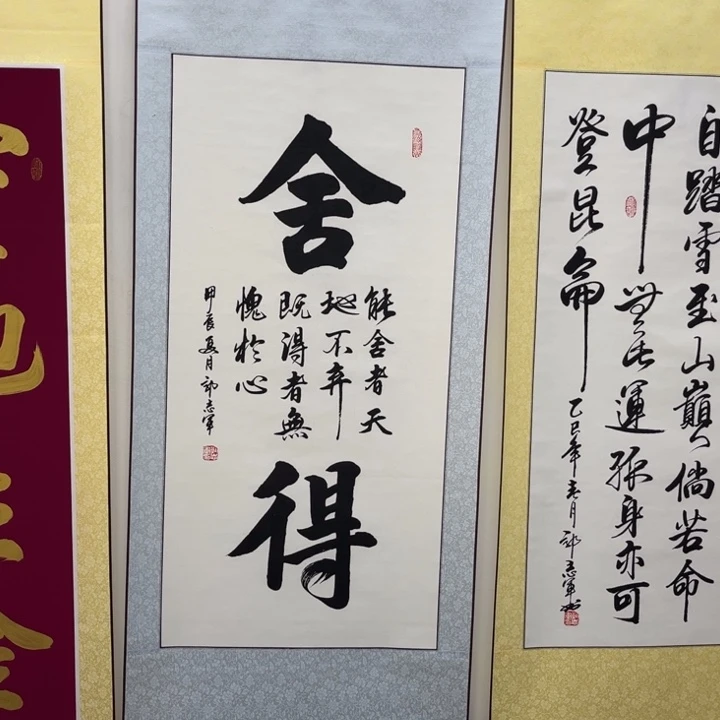 舍
能舍者天
地不弃
既得者無
愧於心
甲辰夏月 郭志軍
得
自踏雪至山巔倘若命
中無此運孤身亦可
登昆侖
乙巳年春月 郭志軍